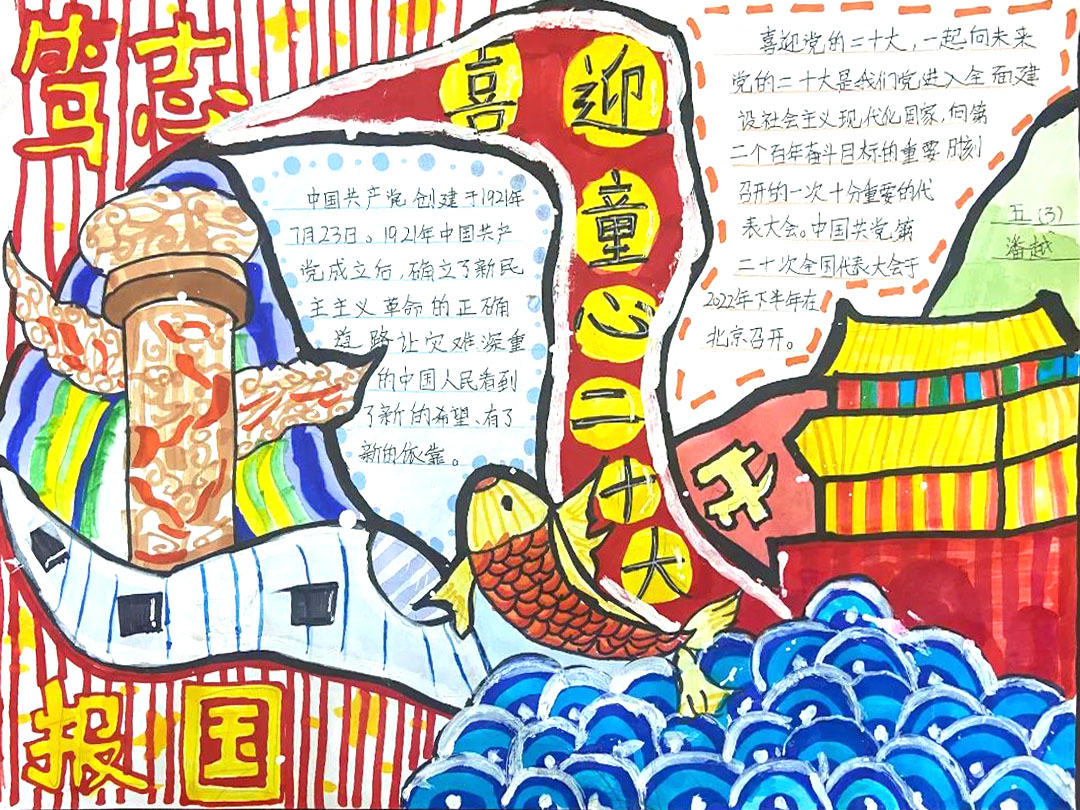 笃志
报国
喜迎童心二十大
中国共产党创建于1921年
7月23日。1921年中国共产
党成立后,确立了新民
主主义革命的正确
道路让灾难深重
的中国人民看到
了新的希望、有了
新的依靠。
喜迎党的二十大,一起向未来
党的二十大是我们党进入全面建
设社会主义现代化国家,向第
二个百年奋斗目标的重要时刻
召开的一次十分重要的代
表大会。中国共党第
二十次全国代表大会于
2022年下半年在
北京召开。
五(3)
潘越